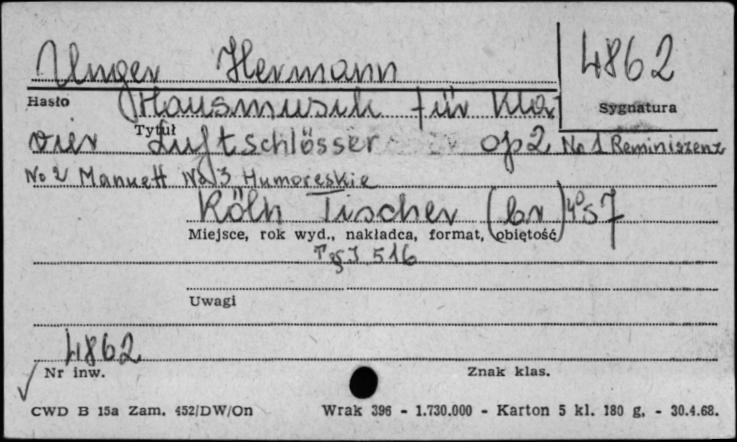 Unger Hermann
4862
Hasło
Hausmusik für Kla
Sygnatura
Tytuł
vier Luftschlösser op 2 No 1 Reminiszenz
No 2 Manuett No 3 Humoreskie
Köln Tischer (br) 4° S 7
Miejsce, rok wyd., nakładca, format, objętość
T&J 516
Uwagi
4862
Nr inw.
Znak klas.
CWD B 15a Zam. 452/DW/On Wrak 396 - 1.730.000 - Karton 5 kl. 180 g. - 30.4.68.